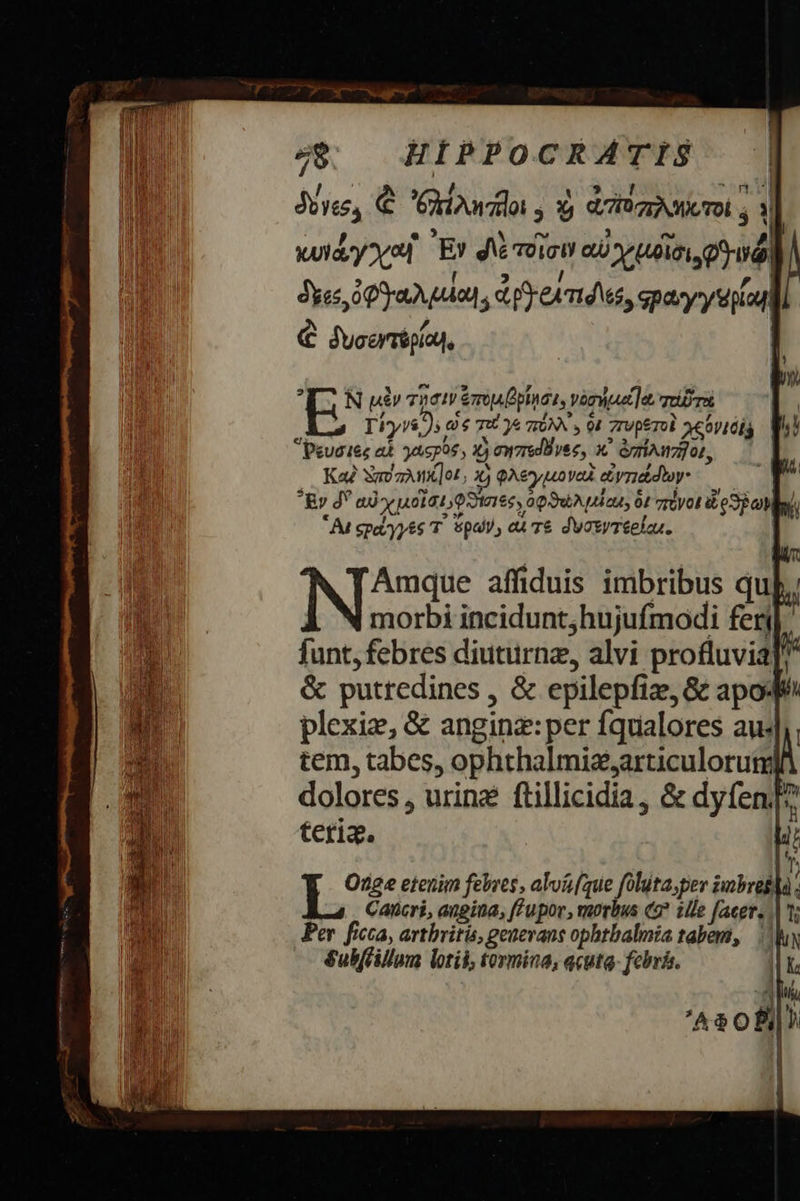 78 HIPPOCRATIS
δόνες, ϗ ἐπίληπτοι, ϗ ἀπόπληκτοι, ϗ
κυνάγχαι. Ἐν δὲ τοῖσιν αὐχμοῖσι, φθινά
δες, ὀφθαλμίαι, ἀρθρίτιδες, στραγγυρίαι
ϗ δυσεντερίαι.
ἘΝ μὲν τῇσιν ἐπομβρίῃσι, νοσήματα ταῦτα
Τίγνε), ὡς τά γε πόλλ', οἱ πυρετοὶ χρόνιοι,
Ῥεύσιες αἱ γαστρός, ϗ σηπεδόνες, κ' ἐπίληπτοι,
Καὶ ἀπόπληκτοι, ϗ φλεγμοναὶ ἀντιάδων·
Ἐν δ' αὐχμοῖσι, φθίσιες, ὀφθαλμίαι, οἱ πόνοι ἀρθρων
Αἱ στράγγες τ' ὔρων, αἵ τε δυσεντερίαι.
NAmque assiduis imbribus qui
morbi incidunt, hujusmodi feri
sunt, febres diuturnæ, alvi profluvia,
& putredines, & epilepsiæ, & apo-
plexiæ, & anginæ: per squalores au-
tem, tabes, ophthalmiæ, articulorum
dolores, urinæ stillicidia, & dysen-
teriæ.
LOnge etenim febres, alvúsque soluta, per imbres
Cancri, angina, stupor, morbus & ille sacer.
Per sicca, arthritis, generans ophthalmia tabem,
Substillum lotii, tormina, acuta febris.